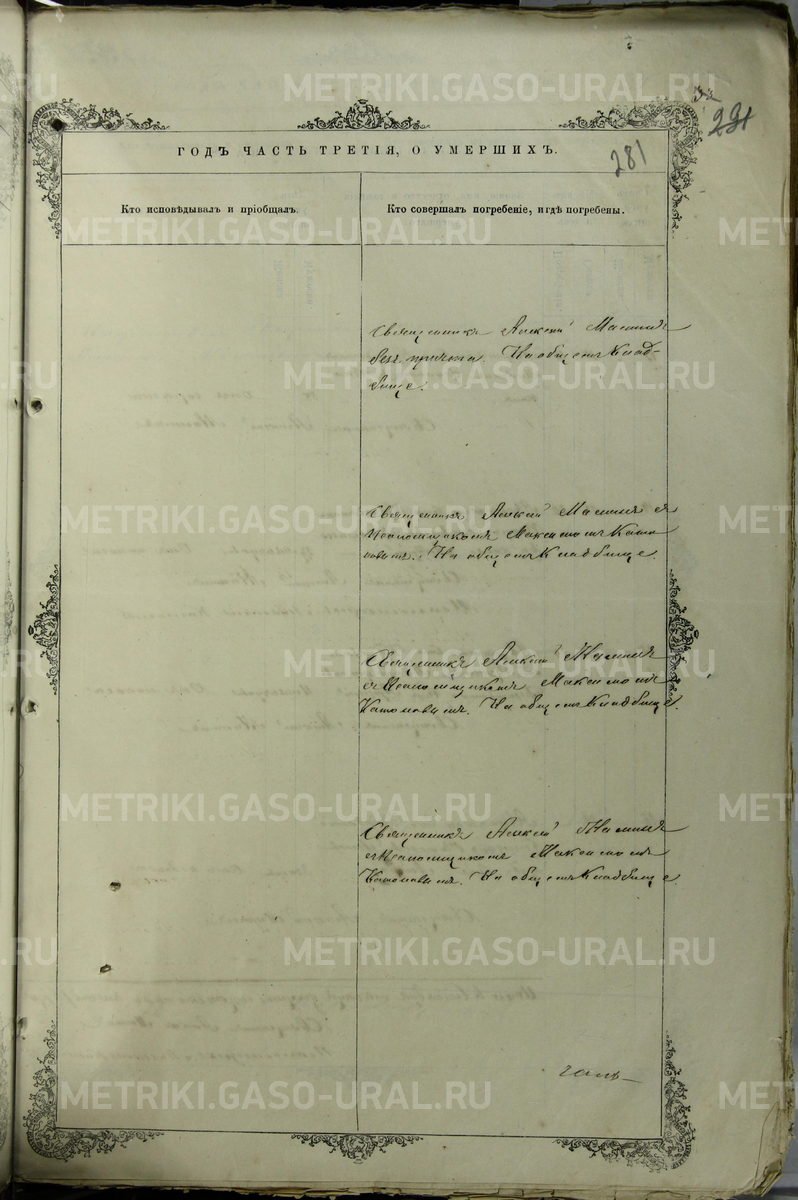 METRIKI.GASO-URAL.RU
231
281
ГОДЪ ЧАСТЬ ТРЕТІЯ, О УМЕРШИХЪ.
Кто исповѣдывалъ и пріобщалъ.
Кто совершалъ погребеніе, и гдѣ погребены.
Священникъ Алексій Маминъ
безъ причта. На общемъ клад-
бище.
Священникъ Алексій Маминъ съ
Псаломщикомъ Максимомъ
На общемъ Кладбище.
Священникъ Алексій Маминъ
съ Псаломщикомъ Максимомъ
На общемъ Кладбище.
Священникъ Алексій Маминъ
съ Псаломщикомъ Максимомъ
На общемъ Кладбище.